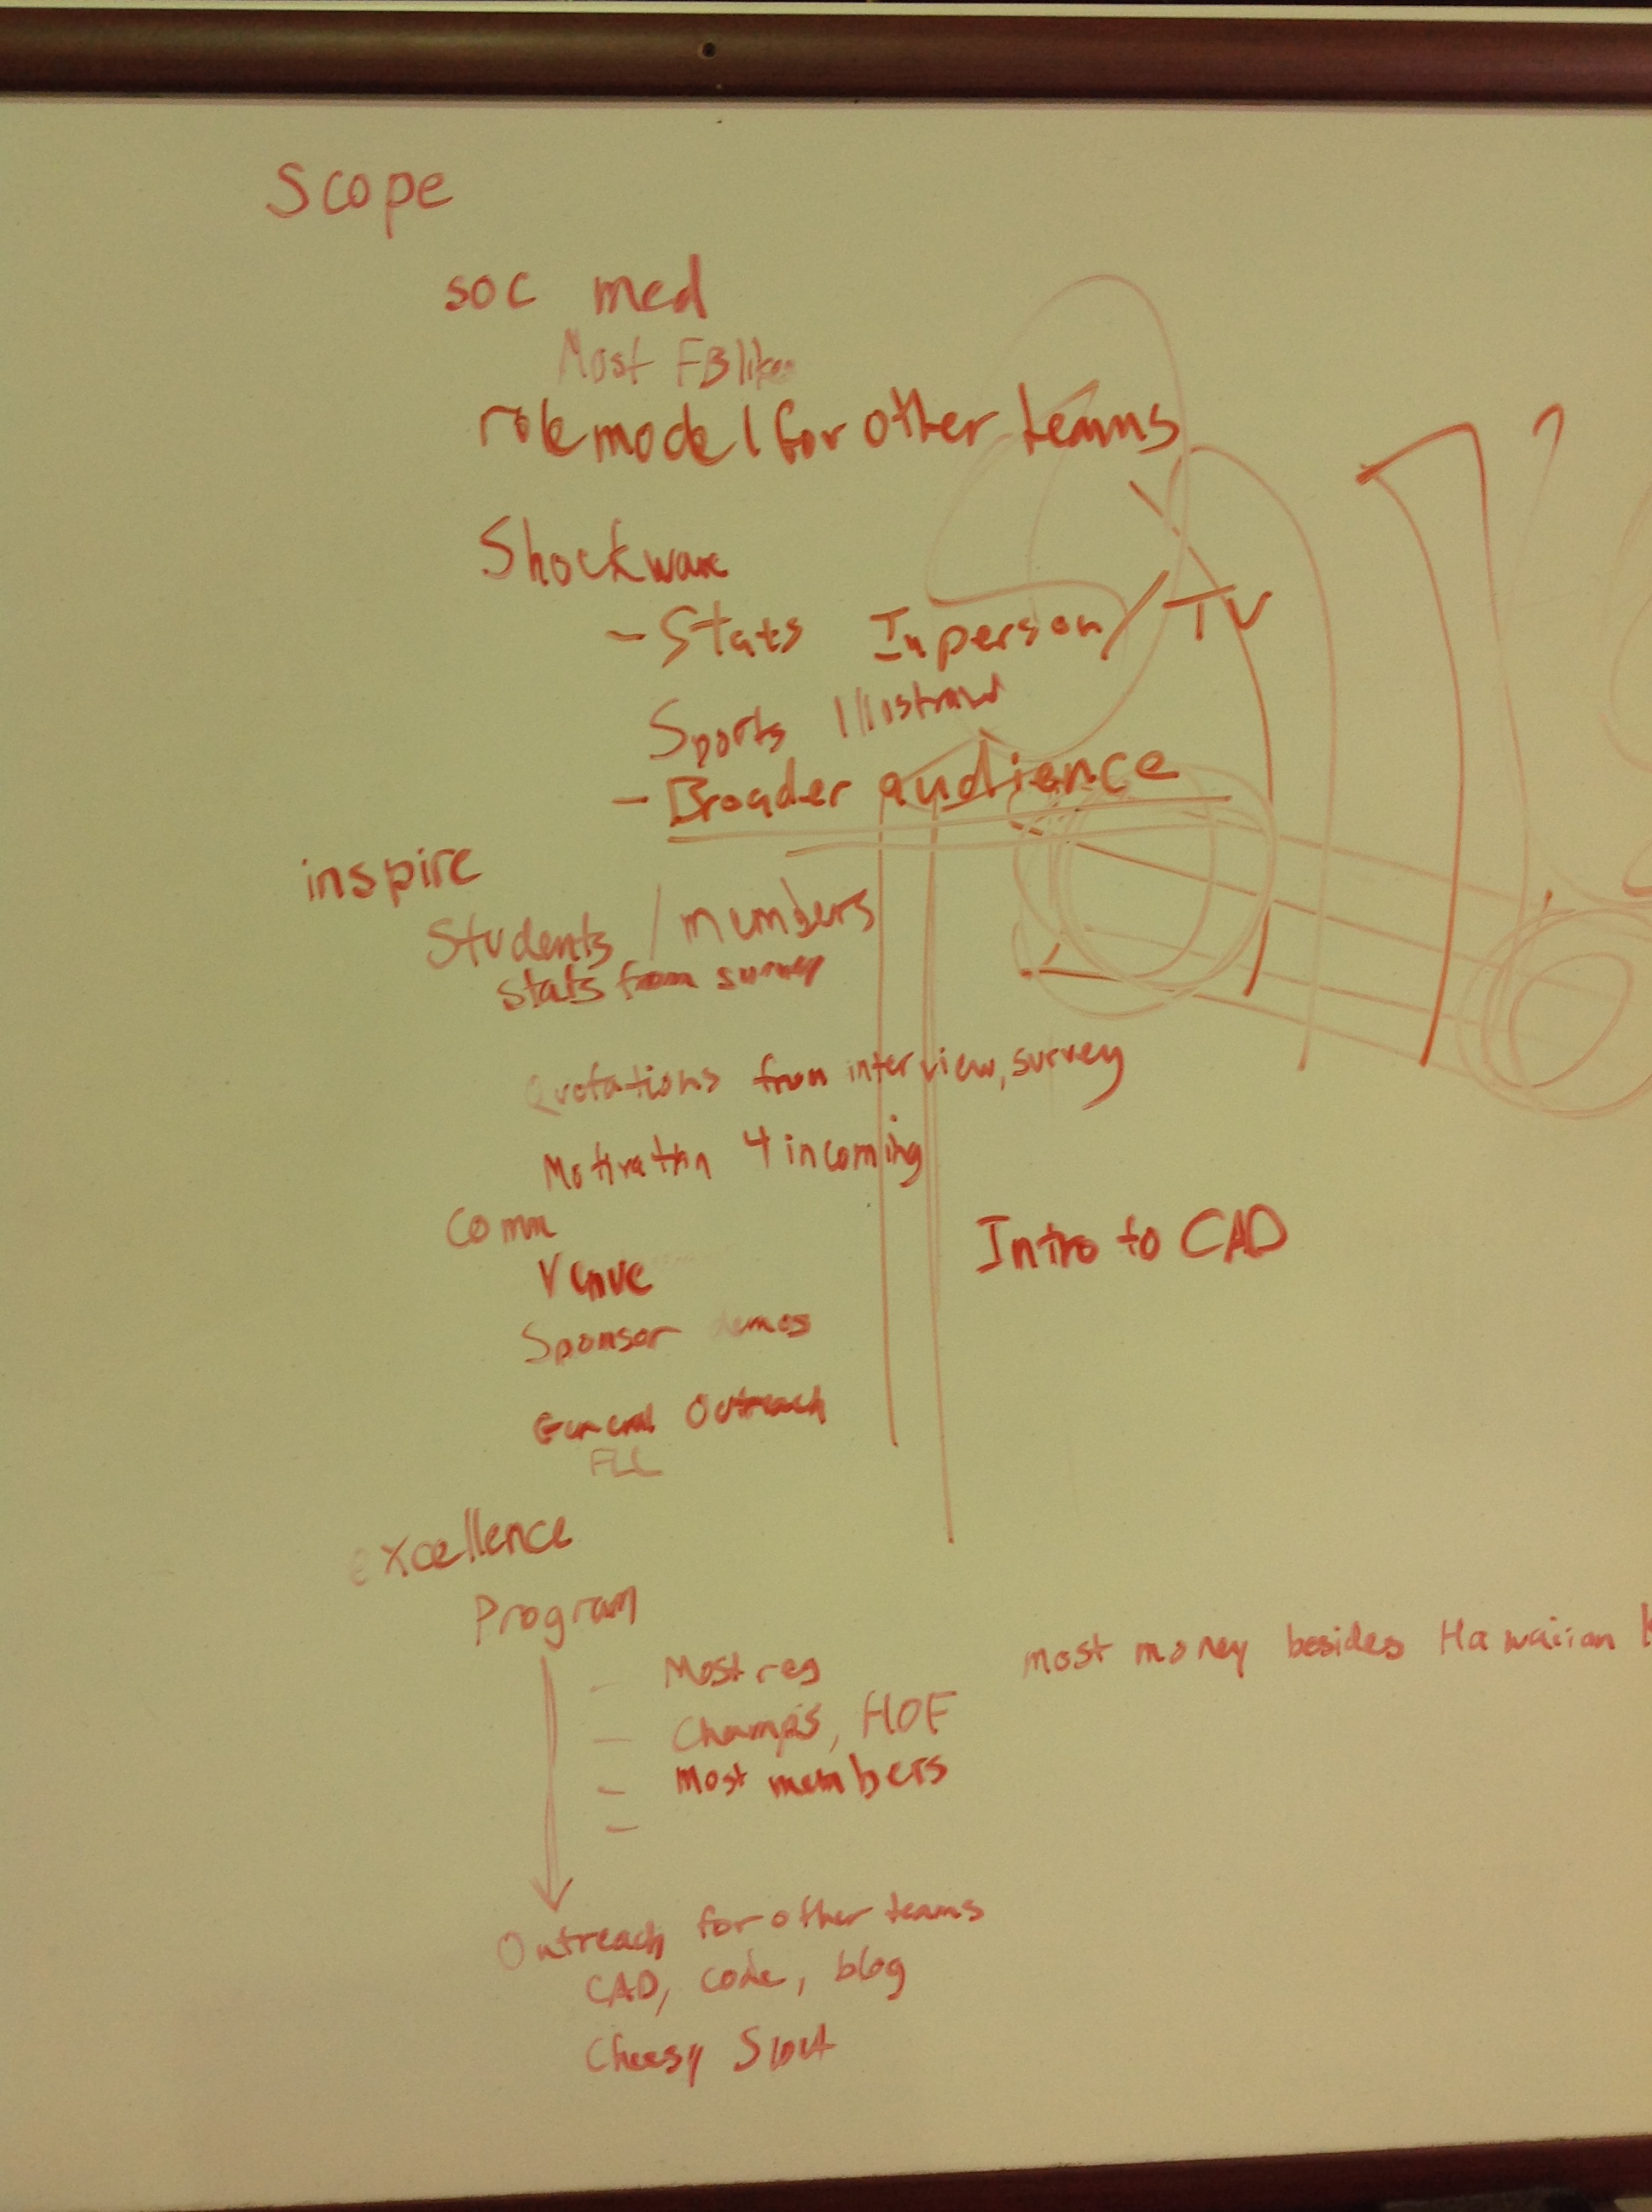 Scope
soc med
Most FB likes
role model for other teams
Shockwave
- Stats Inperson / TV
Sports Illustrated
- Broader audience
inspire
Students / members
stats from survey
Quotations from interview, survey
Motivation 4 incoming
Comm
Venue
Intro to CAD
Sponsor demos
General Outreach
FLL
excellence
Program
- Most reg
most money besides Hawaiian
- Champs, HOF
- Most members
-
Outreach for other teams
CAD, code, blog
Cheesy